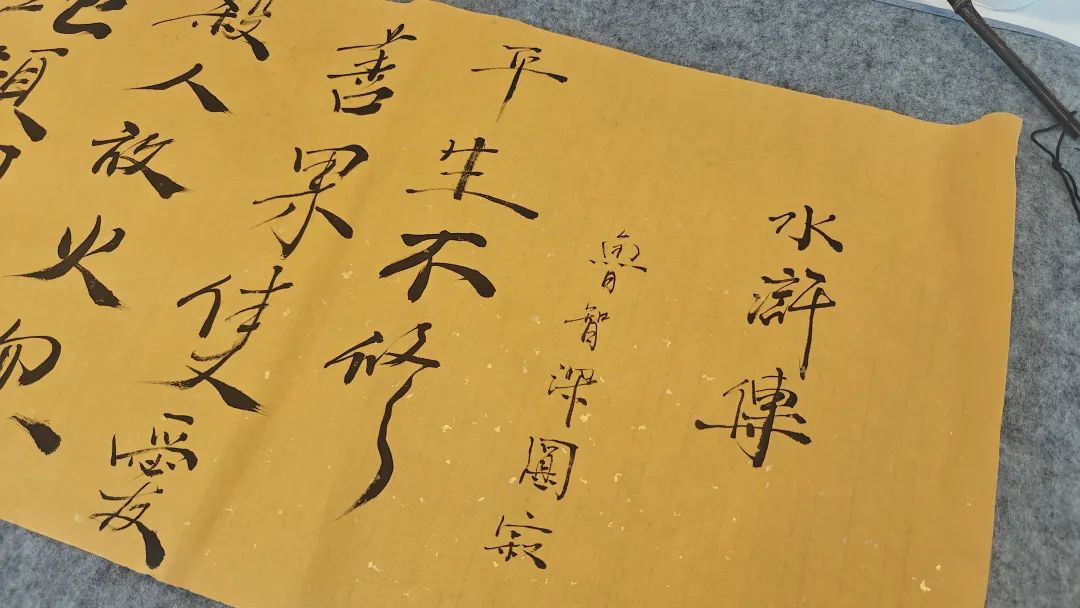 水滸傳
魯智深圓寂
平生不修
善果隻愛
殺人放火忽